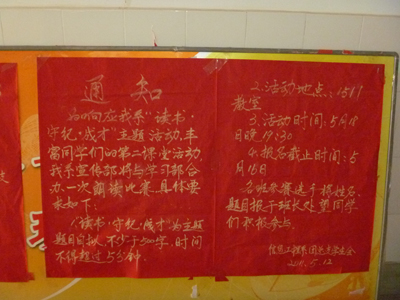 通知
为响应我系“读书·
守纪·成才”主题活动,丰
富同学们的第二课堂活动,
我系宣传部将与学习部合
办一次朗读比赛,具体要
求如下:
1.“读书·守纪·成才”为主题
题目自拟,不少于500字,时间
不得超过5分钟.
2.活动地点:1511
教室
3.活动时间:5月
日晚19:30
4.报名截止时间:5
月15日
各班参赛选手将姓名,
题目报于班长处,望同学
们积极参与.
信息工程系
2011.5.12